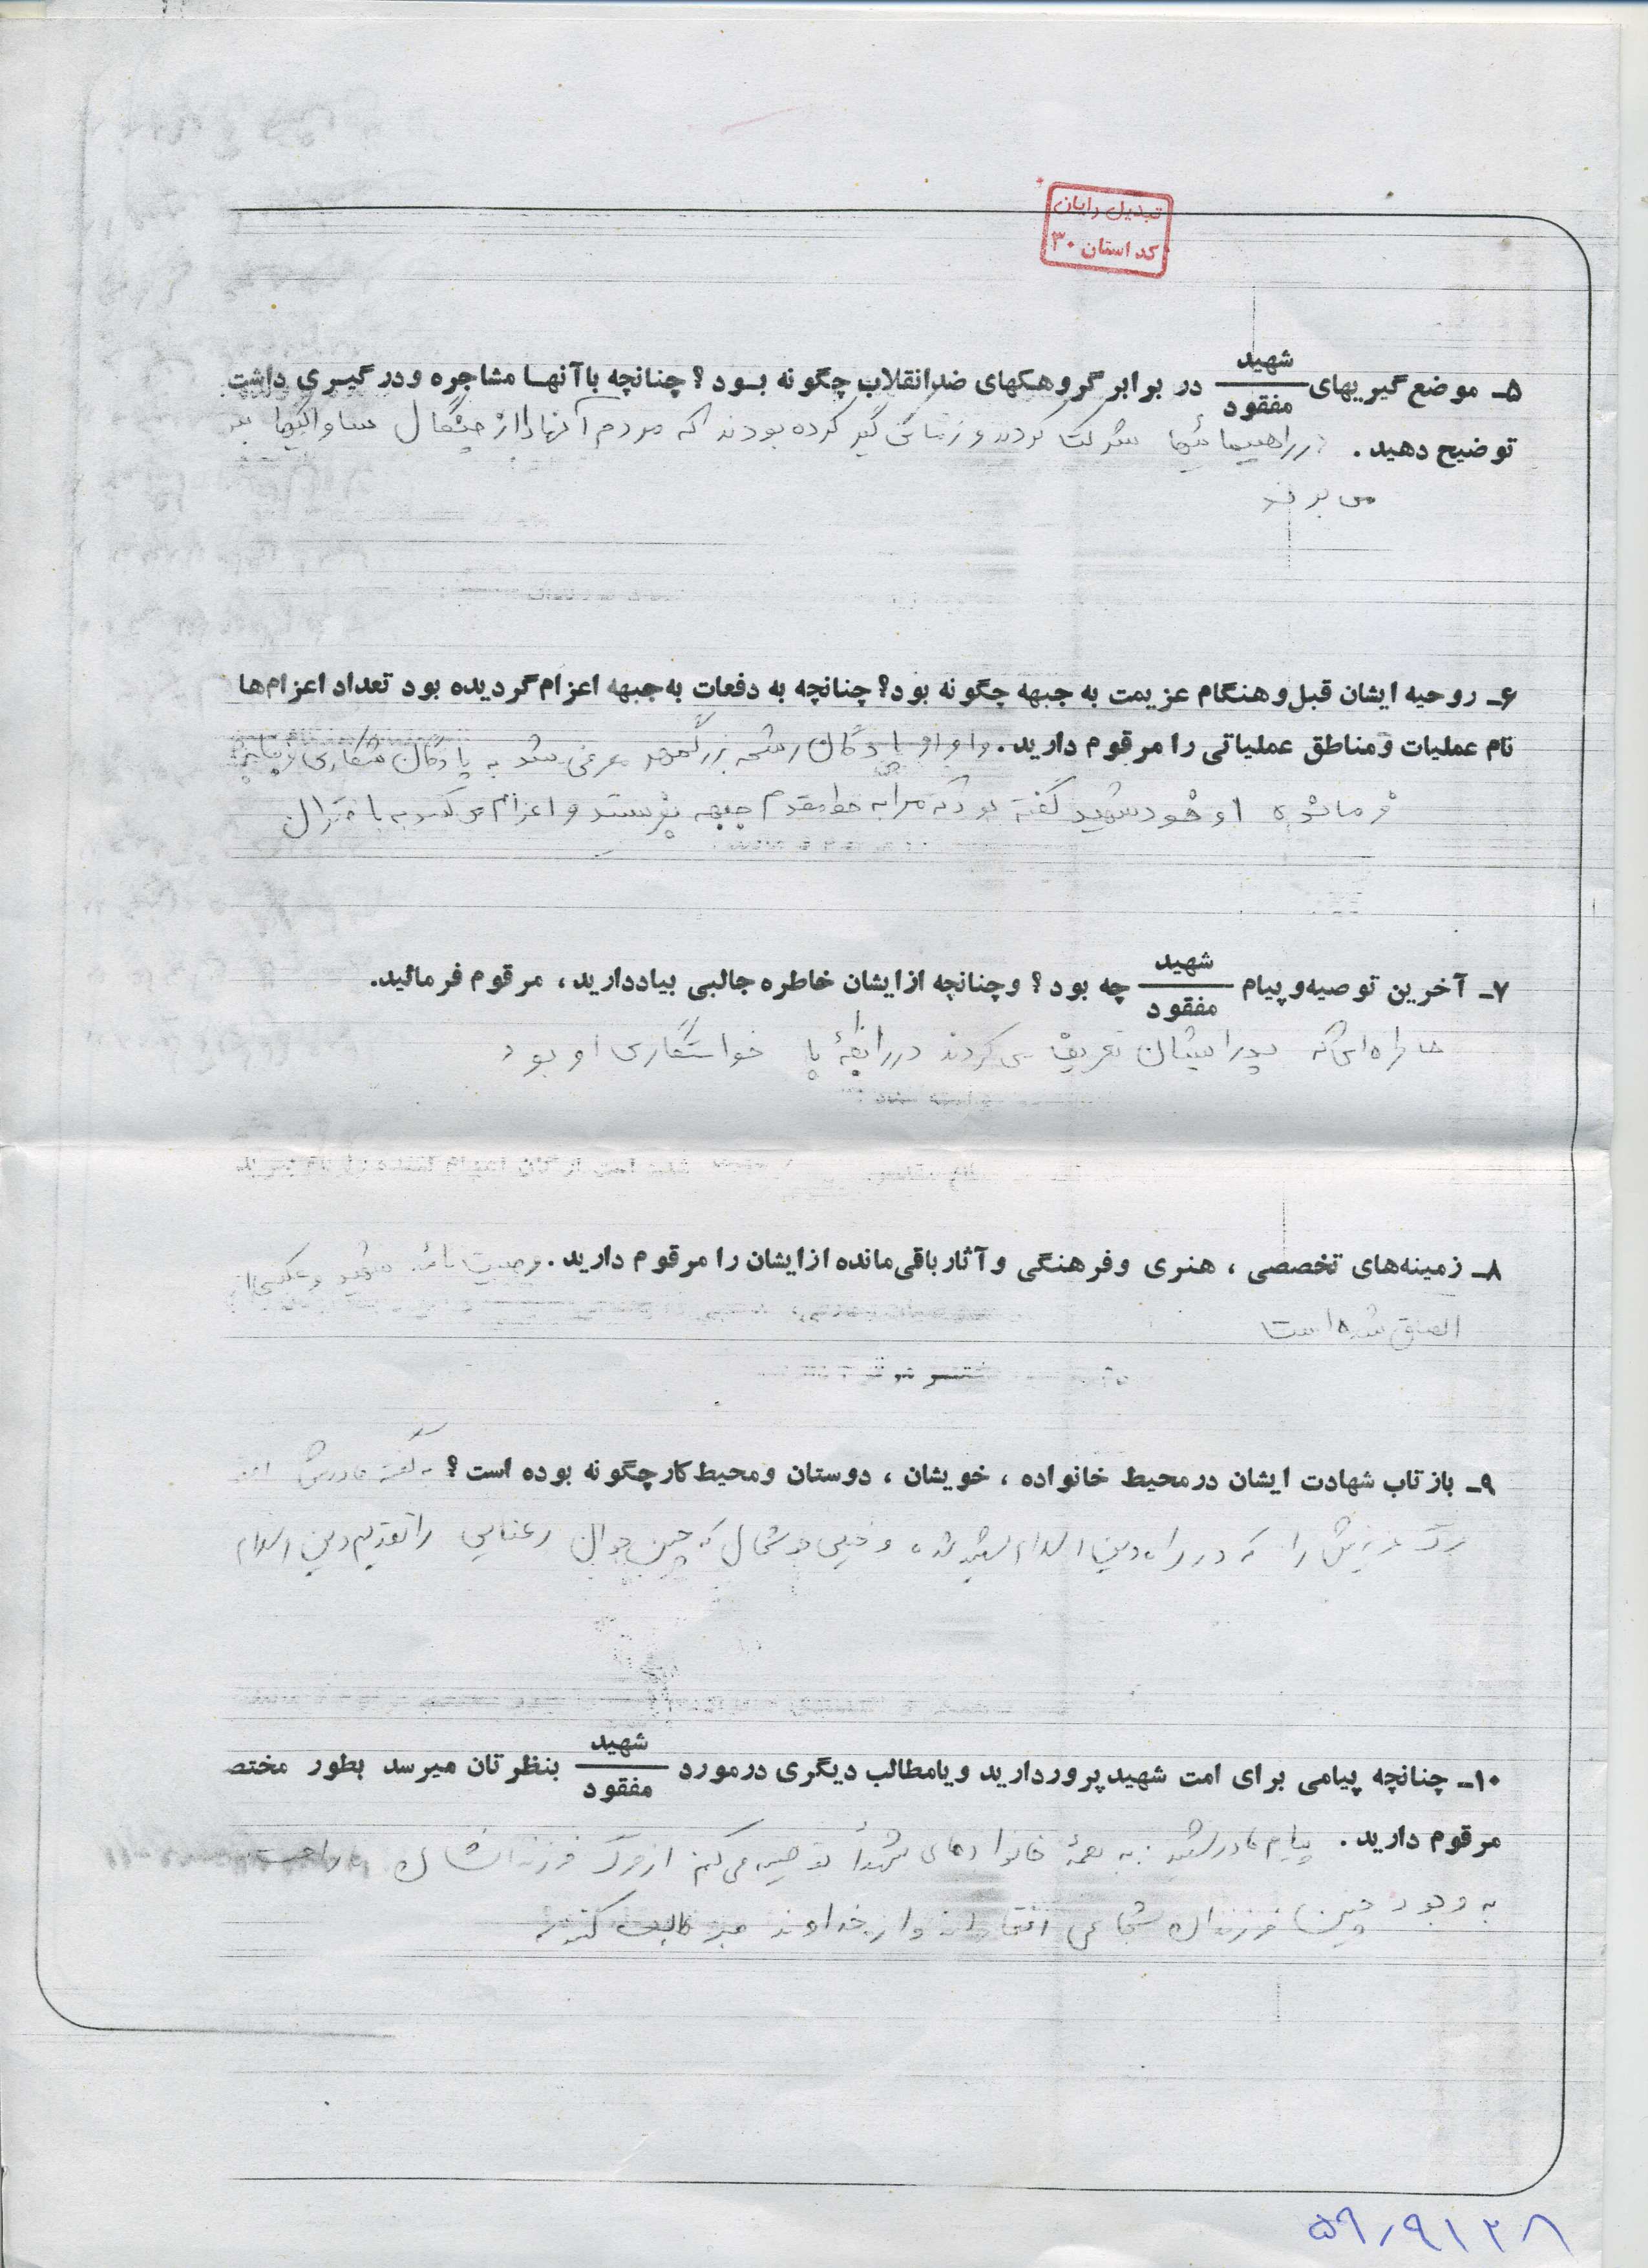 تبدیل رایان
کد استان ۳۰
۵ـ موضع گیریهای شهید / مفقود در برابر گروهکهای ضدانقلاب چگونه بود؟ چنانچه باآنها مشاجره ودرگیری داشت
توضیح دهید. در راهپیمائیها شرکت کردند و زمانی گیر کرده بودند که مردم آنها را از چنگال ساواکیها
می برند
۶ـ روحیه ایشان قبل وهنگام عزیمت به جبهه چگونه بود؟ چنانچه به دفعات به جبهه اعزام گردیده بود تعداد اعزام‌ها
نام عملیات ومناطق عملیاتی را مرقوم دارید. و او از پادگان معرفی شد به پادگان
فرمانده او خود شهید گفته بود که مرا به خط مقدم جبهه بفرستید و اعزام می کنند به باختران
۷ـ آخرین توصیه وپیام شهید / مفقود چه بود؟ وچنانچه ازایشان خاطره جالبی بیاددارید، مرقوم فرمائید.
خاطره‌ای که پدر ایشان تعریف می کردند در رابطهٔ با خواستگاری او بود
۸ـ زمینه‌های تخصصی، هنری وفرهنگی وآثار باقی‌مانده ازایشان را مرقوم دارید. وصیت نامه شهید و عکسی از
الصاق شده است
۹ـ بازتاب شهادت ایشان درمحیط خانواده، خویشان، دوستان ومحیط کار چگونه بوده است؟ به گفته مادرش
مرگ عزیزش را که در راه دین اسلام شهید شده و خیلی خوشحال که چنین جوان رعنایی را تقدیم دین اسلام
۱۰ـ چنانچه پیامی برای امت شهیدپرور دارید ویامطالب دیگری درمورد شهید / مفقود بنظرتان میرسد بطور مختص
مرقوم دارید. پیام مادر شهید: به همهٔ خانواده‌های شهدا توصیه می کنم از مرگ فرزندانشان ناراحت
به وجود چنین فرزندان شجاعی افتخار و از خداوند صبر طلب کنند.
۵۹/۹۱۲۸